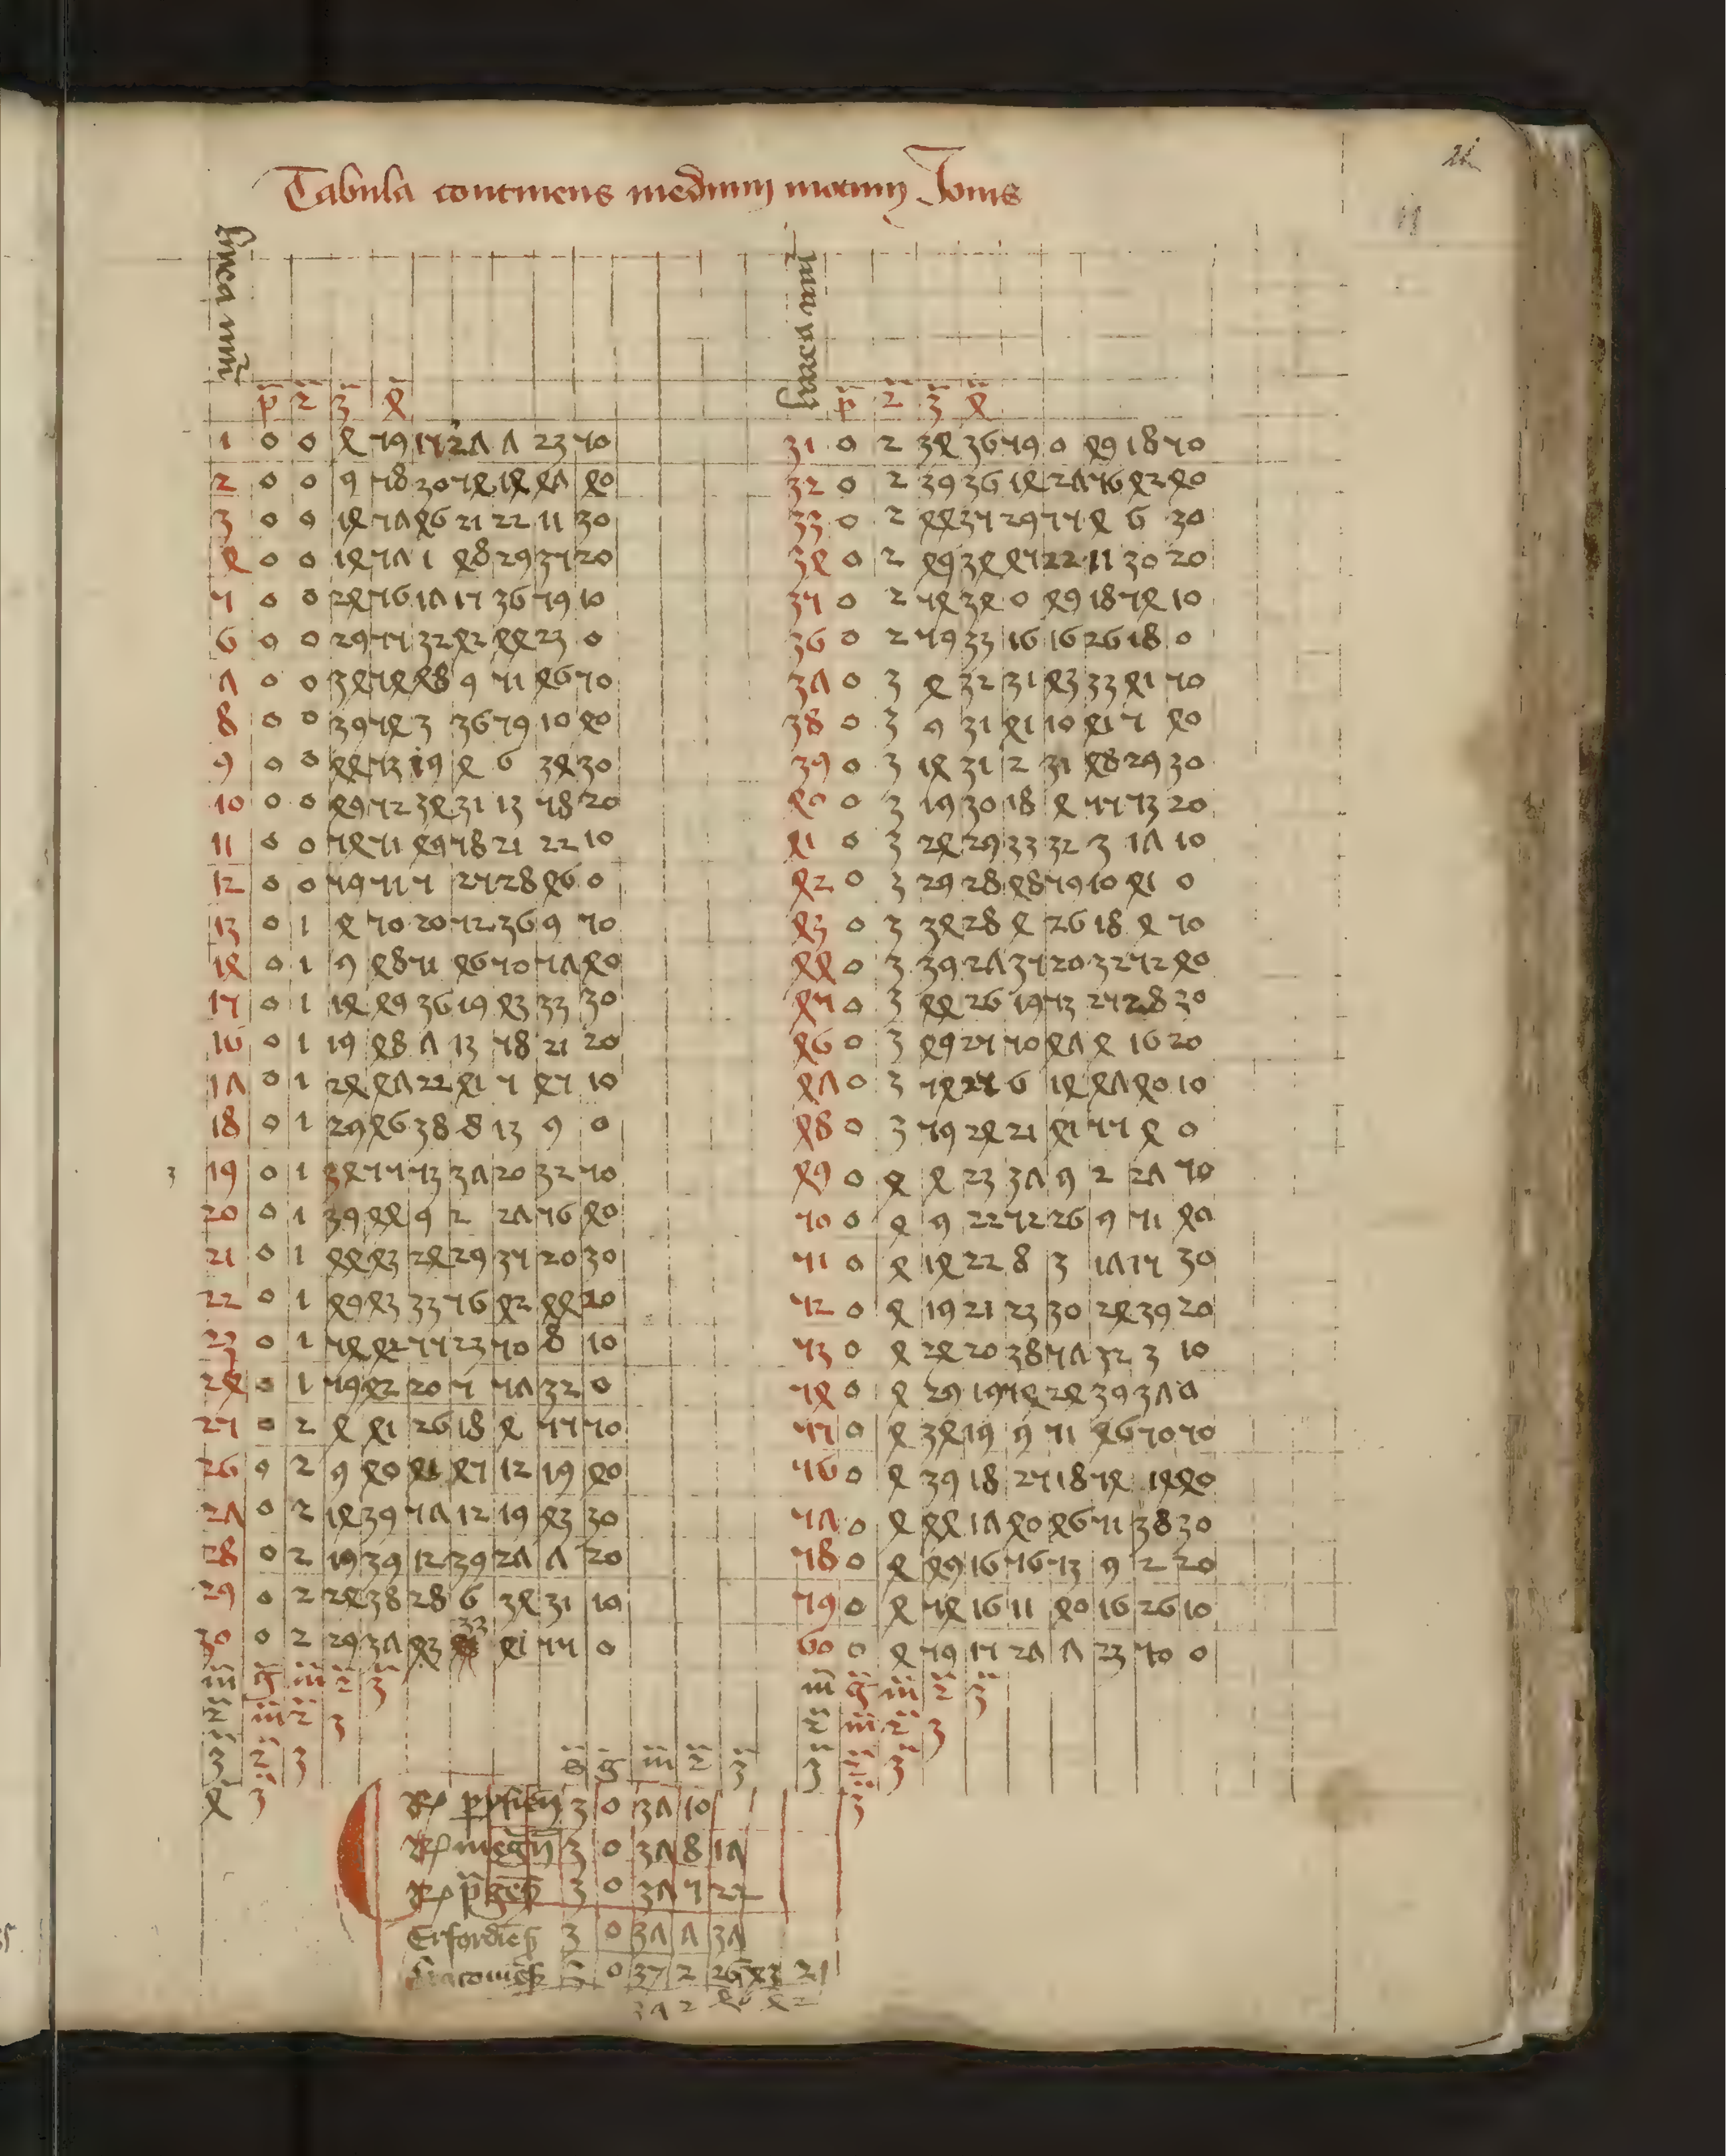 Tabula continens medium motum Jovis
p 2 3 4
1 0 0 4 59 15 27 7 23 50
2 0 0 9 58 30 54 14 47 40
3 0 0 14 57 46 21 22 11 30
4 0 0 14 57 1 48 29 35 20
5 0 0 24 56 17 15 36 59 10
6 0 0 29 55 32 42 44 23 0
7 0 0 34 54 48 9 51 46 50
8 0 0 39 54 3 36 59 10 40
9 0 0 44 53 19 4 6 34 30
10 0 0 49 52 34 31 13 58 20
11 0 0 54 51 49 58 21 22 10
12 0 0 59 51 5 25 28 46 0
13 0 1 4 50 20 52 36 9 50
14 0 1 9 48 51 46 50 57 40
15 0 1 14 49 36 19 43 33 30
16 0 1 19 48 7 13 58 21 20
17 0 1 24 47 22 41 5 45 10
18 0 1 29 46 38 8 13 9 0
19 0 1 34 55 53 37 20 32 50
20 0 1 39 44 9 2 27 56 40
21 0 1 44 43 24 29 35 20 30
22 0 1 49 43 33 56 42 44 20
23 0 1 54 42 55 23 50 8 10
24 0 1 59 42 20 5 57 32 0
25 0 2 4 41 26 18 4 55 50
26 0 2 9 40 41 45 12 19 40
27 0 2 14 39 57 12 19 43 30
28 0 2 19 39 12 39 27 7 20
29 0 2 24 38 28 6 34 31 10
30 0 2 29 37 43 33 41 55 0
m g m 2 3
2 m 2 3
3 2 3
4 3
p 2 3 4
31 0 2 34 36 59 0 49 18 50
32 0 2 39 36 14 27 56 42 40
33 0 2 44 35 29 55 4 6 30
34 0 2 49 34 45 22 11 30 20
35 0 2 54 34 0 49 18 54 10
36 0 2 59 33 16 16 26 18 0
37 0 3 4 32 31 43 33 41 50
38 0 3 9 31 41 10 41 5 40
39 0 3 14 31 2 31 48 29 30
40 0 3 19 30 18 4 55 53 20
41 0 3 24 29 33 32 3 17 10
42 0 3 29 28 48 59 10 41 0
43 0 3 34 28 4 26 18 4 50
44 0 3 39 27 35 20 32 52 40
45 0 3 44 26 19 53 25 28 30
46 0 3 49 25 50 47 4 16 20
47 0 3 54 25 6 14 47 40 10
48 0 3 59 24 21 41 55 4 0
49 0 4 4 23 37 9 2 27 50
50 0 4 9 22 52 26 9 51 40
51 0 4 14 22 8 3 17 15 30
52 0 4 19 21 23 30 24 39 20
53 0 4 24 20 38 57 32 3 10
54 0 4 29 19 54 24 39 37 0
55 0 4 34 19 9 51 46 50 50
56 0 4 39 18 25 18 54 14 40
57 0 4 44 17 40 46 51 38 30
58 0 4 49 16 56 13 9 2 20
59 0 4 54 16 11 40 16 26 10
60 0 4 59 15 27 7 23 50 0
m g m 2 3
2 m 2 3
3 2 3
3
g m 2 3
3 0 37 10
3 0 37 8 17
3 0 37 5 22
Erfordien 3 0 37 7 37